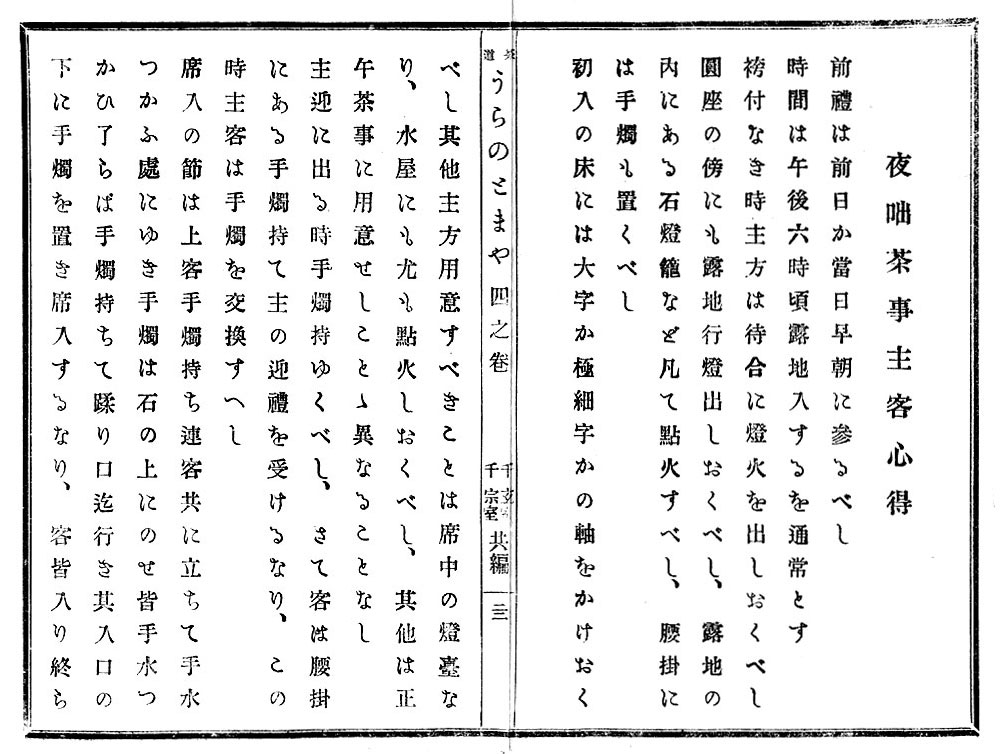 夜咄茶事主客心得
前禮は前日か當日早朝に參るべし
時間は午後六時頃露地入するを通常とす
袴付なき時主方は待合に燈火を出しおくべし
圓座の傍にも露地行燈出しおくべし、露地の
內にある石燈籠など凡て點火すべし、腰掛に
は手燭も置くべし
初入の床には大字か極細字かの軸をかけおく
茶道 うらのとまや 四之卷
千宗室 共編 二三
べし其他主方用意すべきことは席中の燈臺な
り、水屋にも尤も點火しおくべし、其他は正
午茶事に用意せしことゝ異なることなし
主迎に出る時手燭持ゆくべし、さて客は腰掛
にある手燭持て主の迎禮を受けるなり、この
時主客は手燭を交換すへし
席入の節は上客手燭持ち連客共に立ちて手水
つかふ處にゆき手燭は石の上にのせ皆手水つ
かひ了らば手燭持ちて蹂り口迄行き其入口の
下に手燭を置き席入するなり、客皆入り終ら